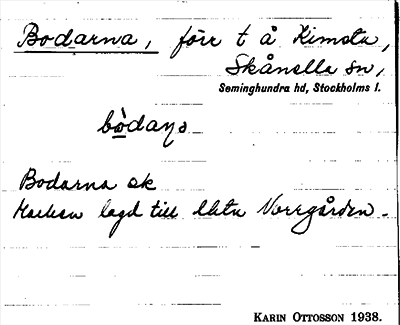 Bodarna, förr t å Kimsta,
Skånella sn,
Seminghundra hd, Stockholms l.
bòdaṇa
Bodarna sk
Marken lagd till Norrgården.
KARIN OTTOSSON 1938.